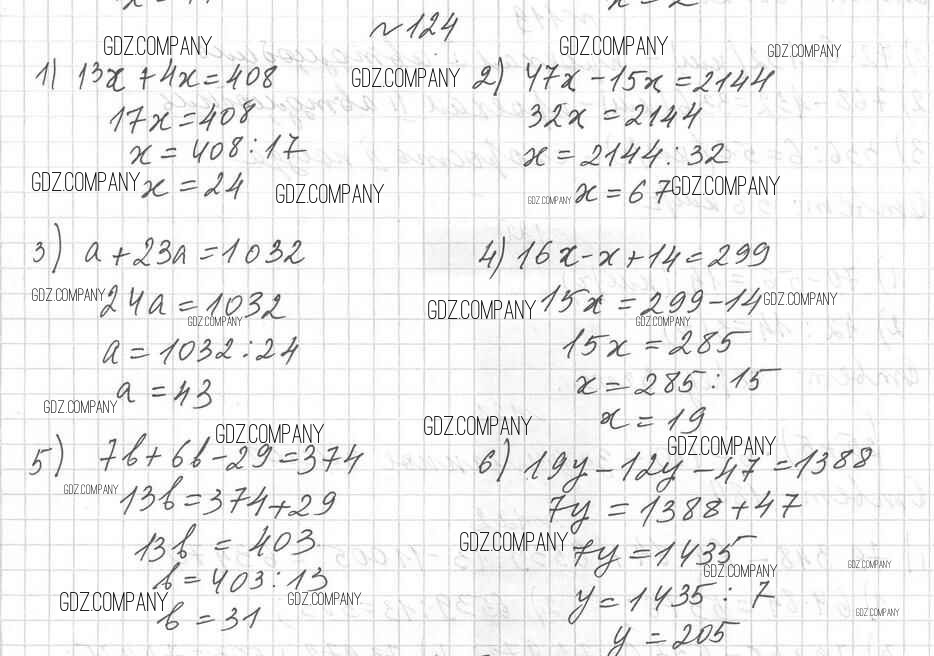 №124
GDZ.COMPANY GDZ.COMPANY GDZ.COMPANY
1) 13x + 4x = 408 GDZ.COMPANY 2) 47x - 15x = 2144
17x = 408 32x = 2144
x = 408 : 17 x = 2144 : 32
GDZ.COMPANY x = 24 GDZ.COMPANY GDZ.COMPANY x = 67 GDZ.COMPANY
3) a + 23a = 1032 4) 16x - x + 14 = 299
GDZ.COMPANY 24a = 1032 GDZ.COMPANY 15x = 299 - 14 GDZ.COMPANY
GDZ.COMPANY GDZ.COMPANY
a = 1032 : 24 15x = 285
a = 43 x = 285 : 15
GDZ.COMPANY x = 19
GDZ.COMPANY GDZ.COMPANY GDZ.COMPANY
5) 7b + 6b - 29 = 374 6) 19y - 12y - 47 = 1388
GDZ.COMPANY 13b = 374 + 29 7y = 1388 + 47
13b = 403 GDZ.COMPANY 7y = 1435 GDZ.COMPANY
b = 403 : 13 GDZ.COMPANY
GDZ.COMPANY GDZ.COMPANY y = 1435 : 7 GDZ.COMPANY
b = 31 y = 205